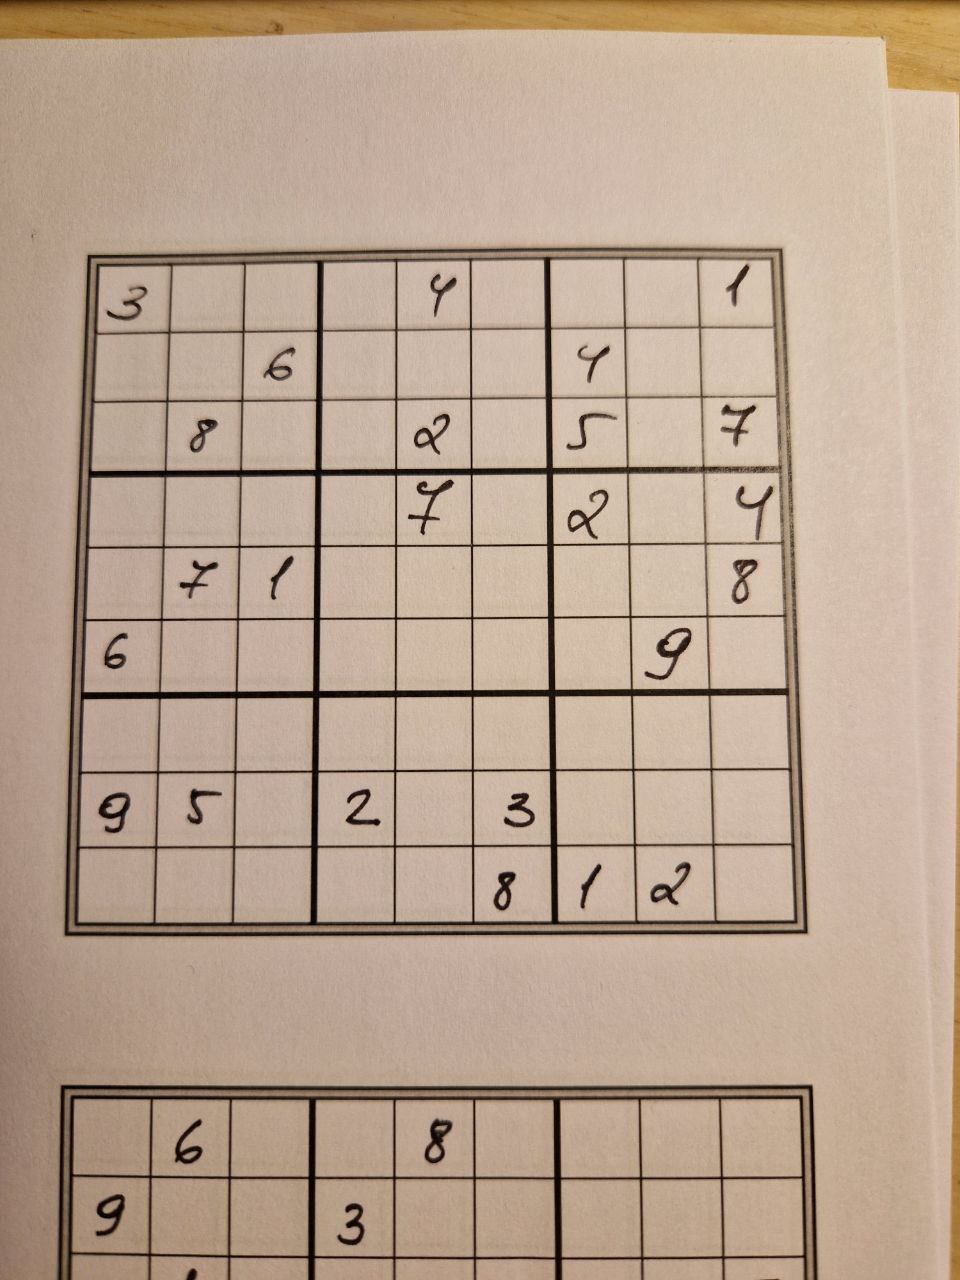 3 4 1
6 4
8 2 5 7
7 2 4
7 1 8
6 9
9 5 2 3
8 1 2
6 8
9 3